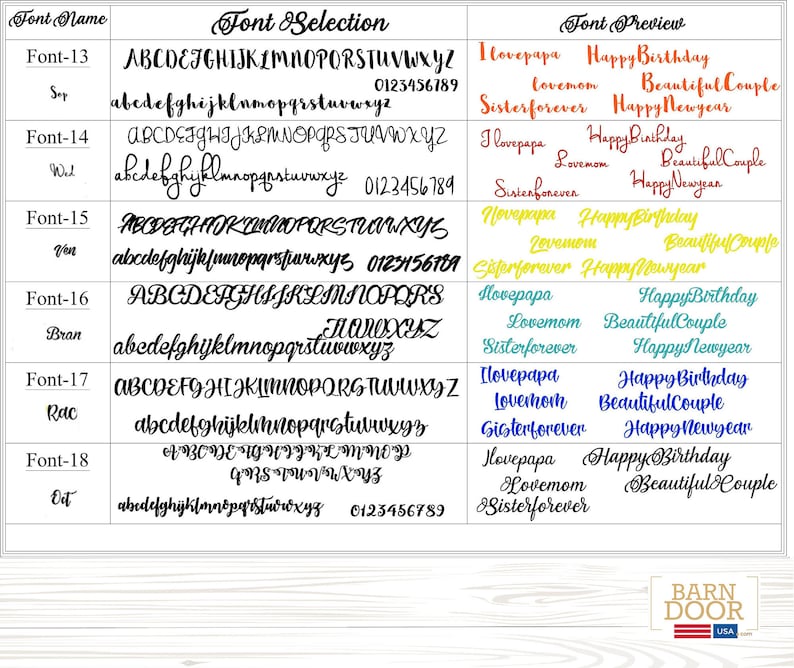 Font Name Font Selection Font Preview
Font-13
Sop
ABCDEFGHIJKLMNOPQRSTUVWXYZ
0123456789
abcdefghijklmnopqrstuvwxyz
Ilovepapa HappyBirthday
lovemom BeautifulCouple
Sisterforever HappyNewyear
Font-14
Wed
ABCDEFGHIJKLMNOPQRSTUVWXYZ
abcdefghijklmnopqrstuvwxyz 0123456789
Ilovepapa HappyBirthday
Lovemom BeautifulCouple
Sisterforever HappyNewyear
Font-15
Ven
ABCDEFGHIJKLMNOPQRSTUVWXYZ
abcdefghijklmnopqrstuvwxyz 0123456789
Ilovepapa HappyBirthday
Lovemom BeautifulCouple
Sisterforever HappyNewyear
Font-16
Bran
ABCDEFGHIJKLMNOPQRS
TUVWXYZ
abcdefghijklmnopqrstuvwxyz
Ilovepapa HappyBirthday
Lovemom BeautifulCouple
Sisterforever HappyNewyear
Font-17
Rac
ABCDEFGHIJKLMNOPQRSTUVWXYZ
abcdefghijklmnopqrstuvwxyz
Ilovepapa HappyBirthday
Lovemom BeautifulCouple
Sisterforever HappyNewyear
Font-18
Oct
ABCDEFGHIJKLMNOP
QRSTUVWXYZ
abcdefghijklmnopqrstuvwxyz 0123456789
Ilovepapa HappyBirthday
Lovemom BeautifulCouple
Sisterforever
BARN
DOOR
USA.com